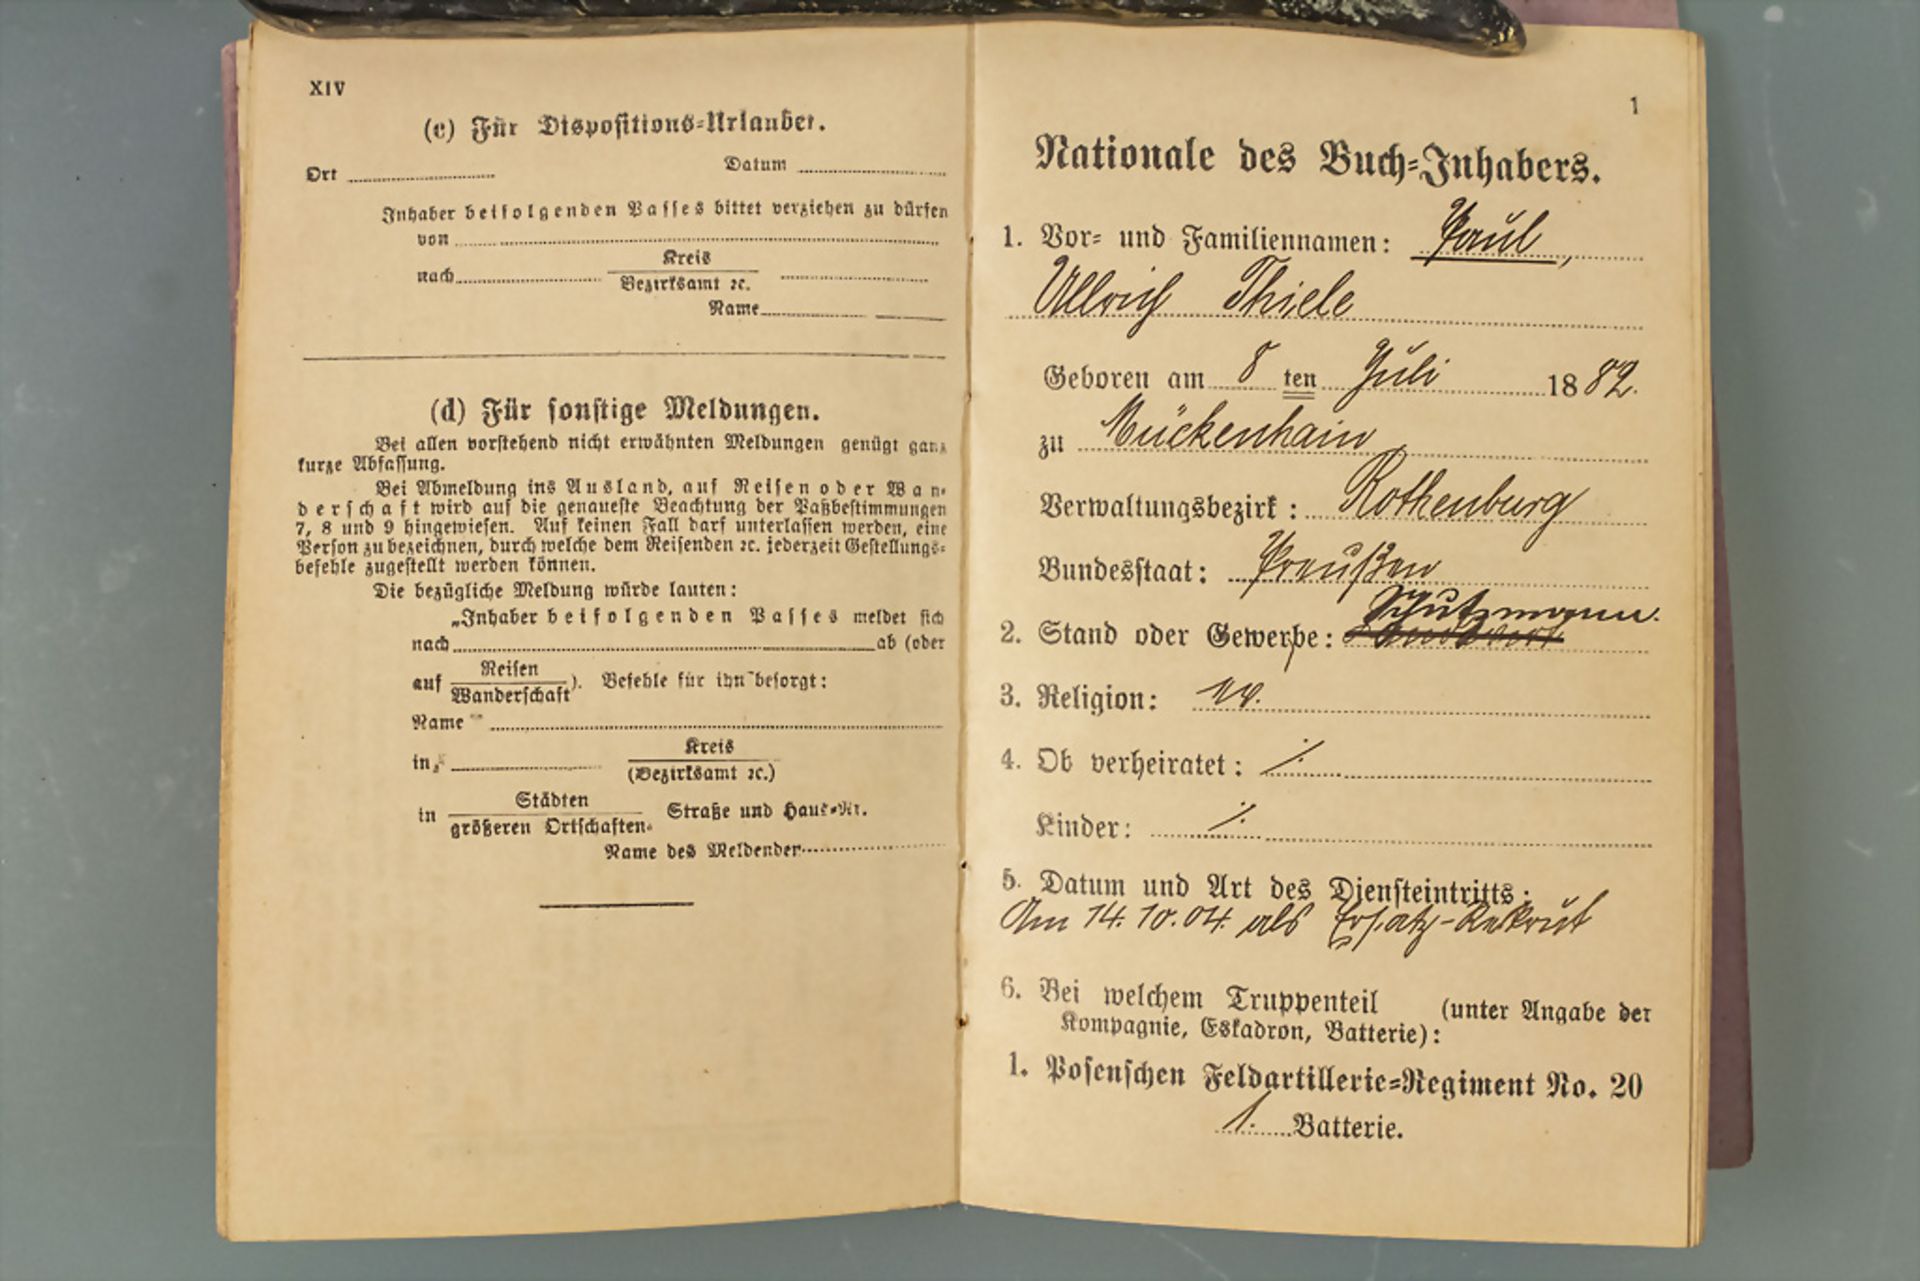 XIV
(c) Für Dispositions-Urlauber.
Ort Datum
Inhaber beifolgenden Passes bittet verziehen zu dürfen
von
nach Kreis
Bezirksamt ꝛc.
Name
(d) Für sonstige Meldungen.
Bei allen vorstehend nicht erwähnten Meldungen genügt ganz
kurze Abfassung.
Bei Abmeldung ins Ausland, auf Reisen oder Wan-
derschaft wird auf die genaueste Beachtung der Paßbestimmungen
7, 8 und 9 hingewiesen. Auf keinen Fall darf unterlassen werden, eine
Person zu bezeichnen, durch welche dem Reisenden ꝛc. jederzeit Gestellungs-
befehle zugestellt werden können.
Die bezügliche Meldung würde lauten:
„Inhaber beifolgenden Passes meldet sich
nach ab (oder
auf Reisen
Wanderschaft). Befehle für ihn besorgt:
Name
in Kreis
(Bezirksamt ꝛc.)
in Städten
größeren Ortschaften. Straße und Haus-Nr.
Name des Meldenden
1
Nationale des Buch-Inhabers.
1. Vor- und Familiennamen: Paul,
Ullrich Thiele
Geboren am 8 ten Juli 1882.
zu Mückenhain
Verwaltungsbezirk: Rothenburg
Bundesstaat: Preußen
Schutzmann.
2. Stand oder Gewerbe:
3. Religion: ev.
4. Ob verheiratet: ⁒
Kinder: ⁒
5. Datum und Art des Diensteintritts:
Am 14.10.04. als Ersatz-Rekrut
6. Bei welchem Truppenteil (unter Angabe der
Kompagnie, Eskadron, Batterie):
1. Posenschen Feldartillerie-Regiment No. 20
1. Batterie.